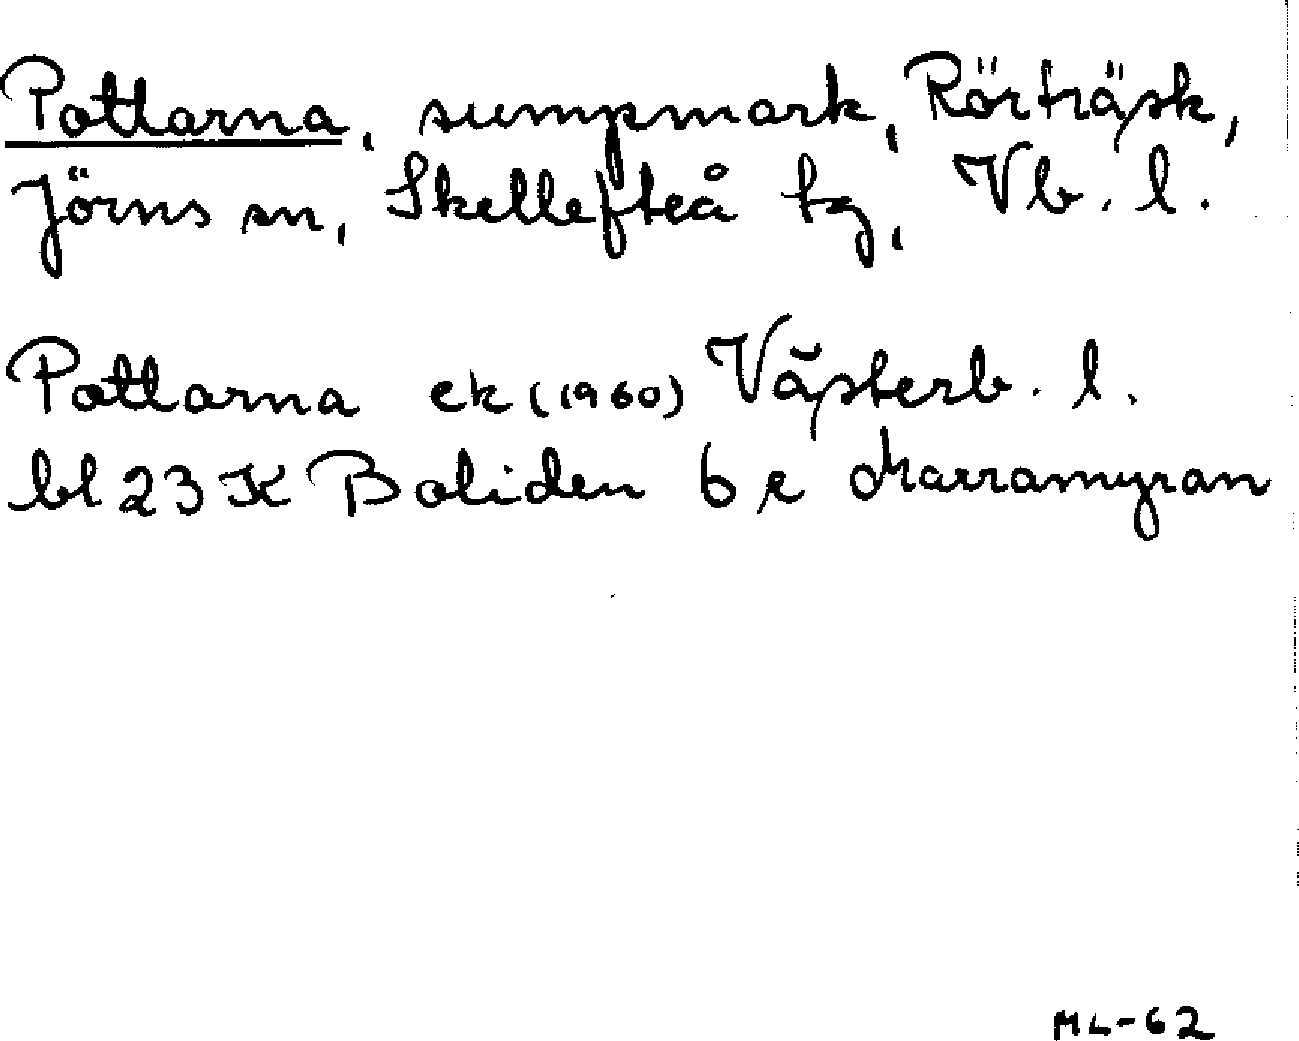 Pottarna, sumpmark, Rörträsk,
Jörns sn, Skellefteå tg, Vb. l.
Pottarna ek (1960) Västerb. l.
bl 23 K Boliden 6 e Marramyran
ML-62